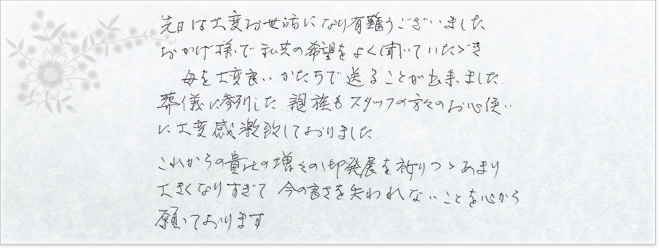 先日は大変お世話になり有難うございました
おかげ様で私共の希望をよく聞いていたゞき
母を大変良いかたちで送ることが出来ました
葬儀に参列した親族もスタッフの方々のお心使い
に大変感激致しておりました
これからの貴社の増々の御発展を祈りつゝあまり
大きくなりすぎて今の良さを失われないことを心から
願っております